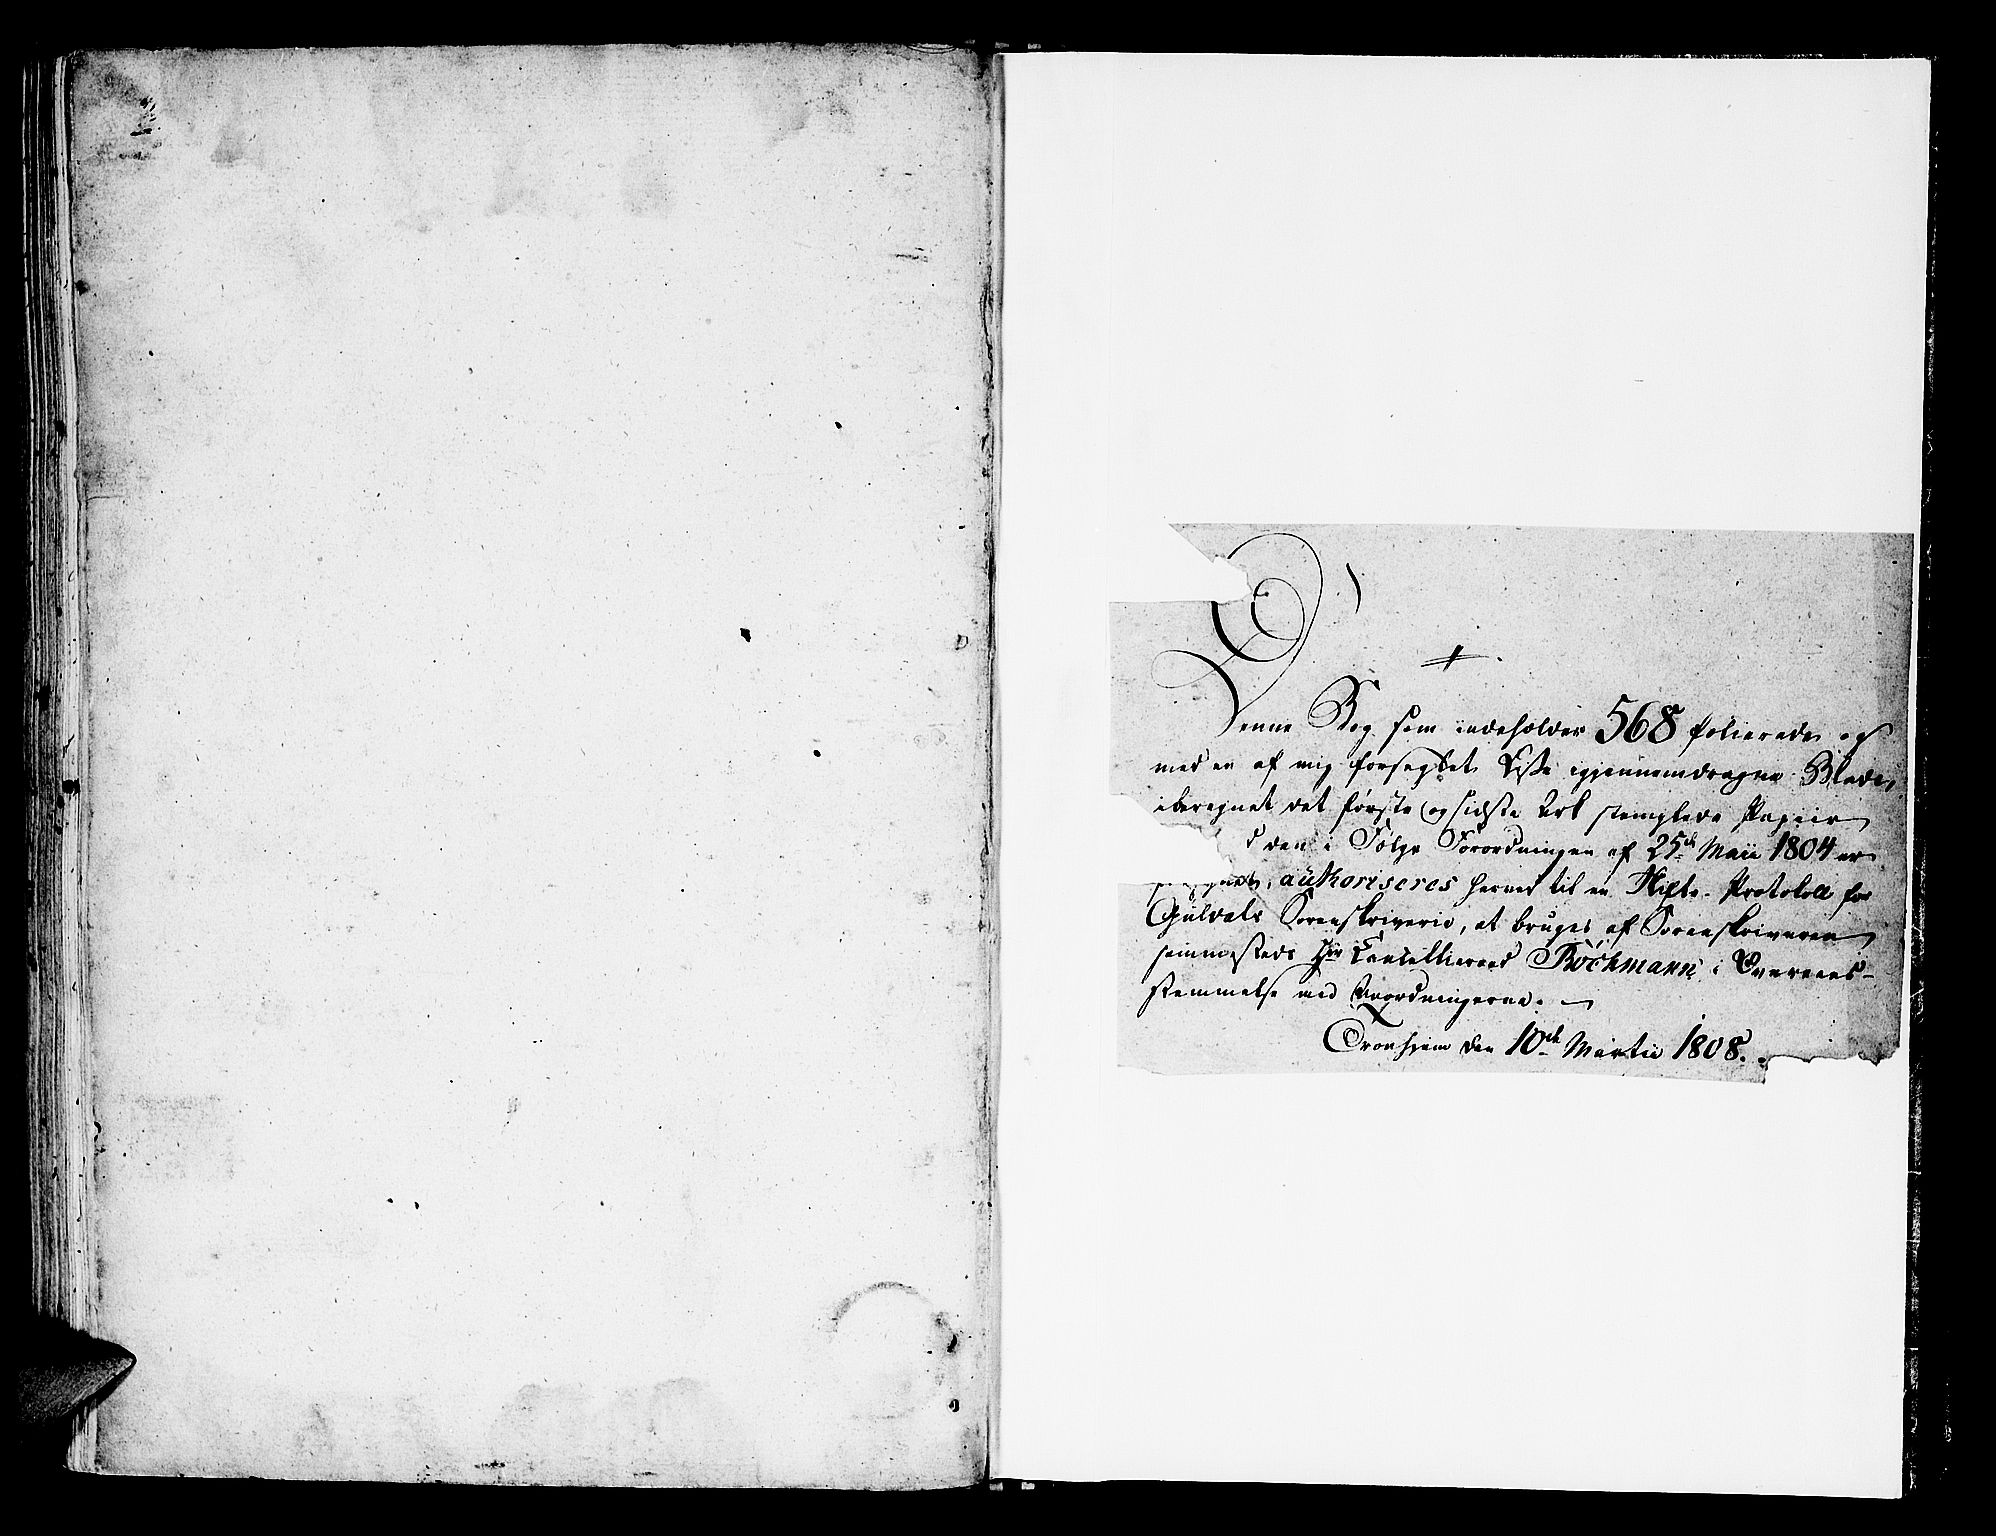 Denne Bog som indeholder 568 folierede og
med en af mig forseglet Liße igjennemdragne Blade,
iberegnet det første og sidste Ark stemplede Papiir
d den i Følge Forordningen af 25de Maii 1804 er
authoriseres herved til en Skifte-Protokoll for
Guldals Sorenskriverie, at bruges af Sorenskriveren
sammesteds Hr Cancellieraad Röckmann i Overeens-
stemmelse med Anordningerne.
Tronhjem den 10de Martii 1808.